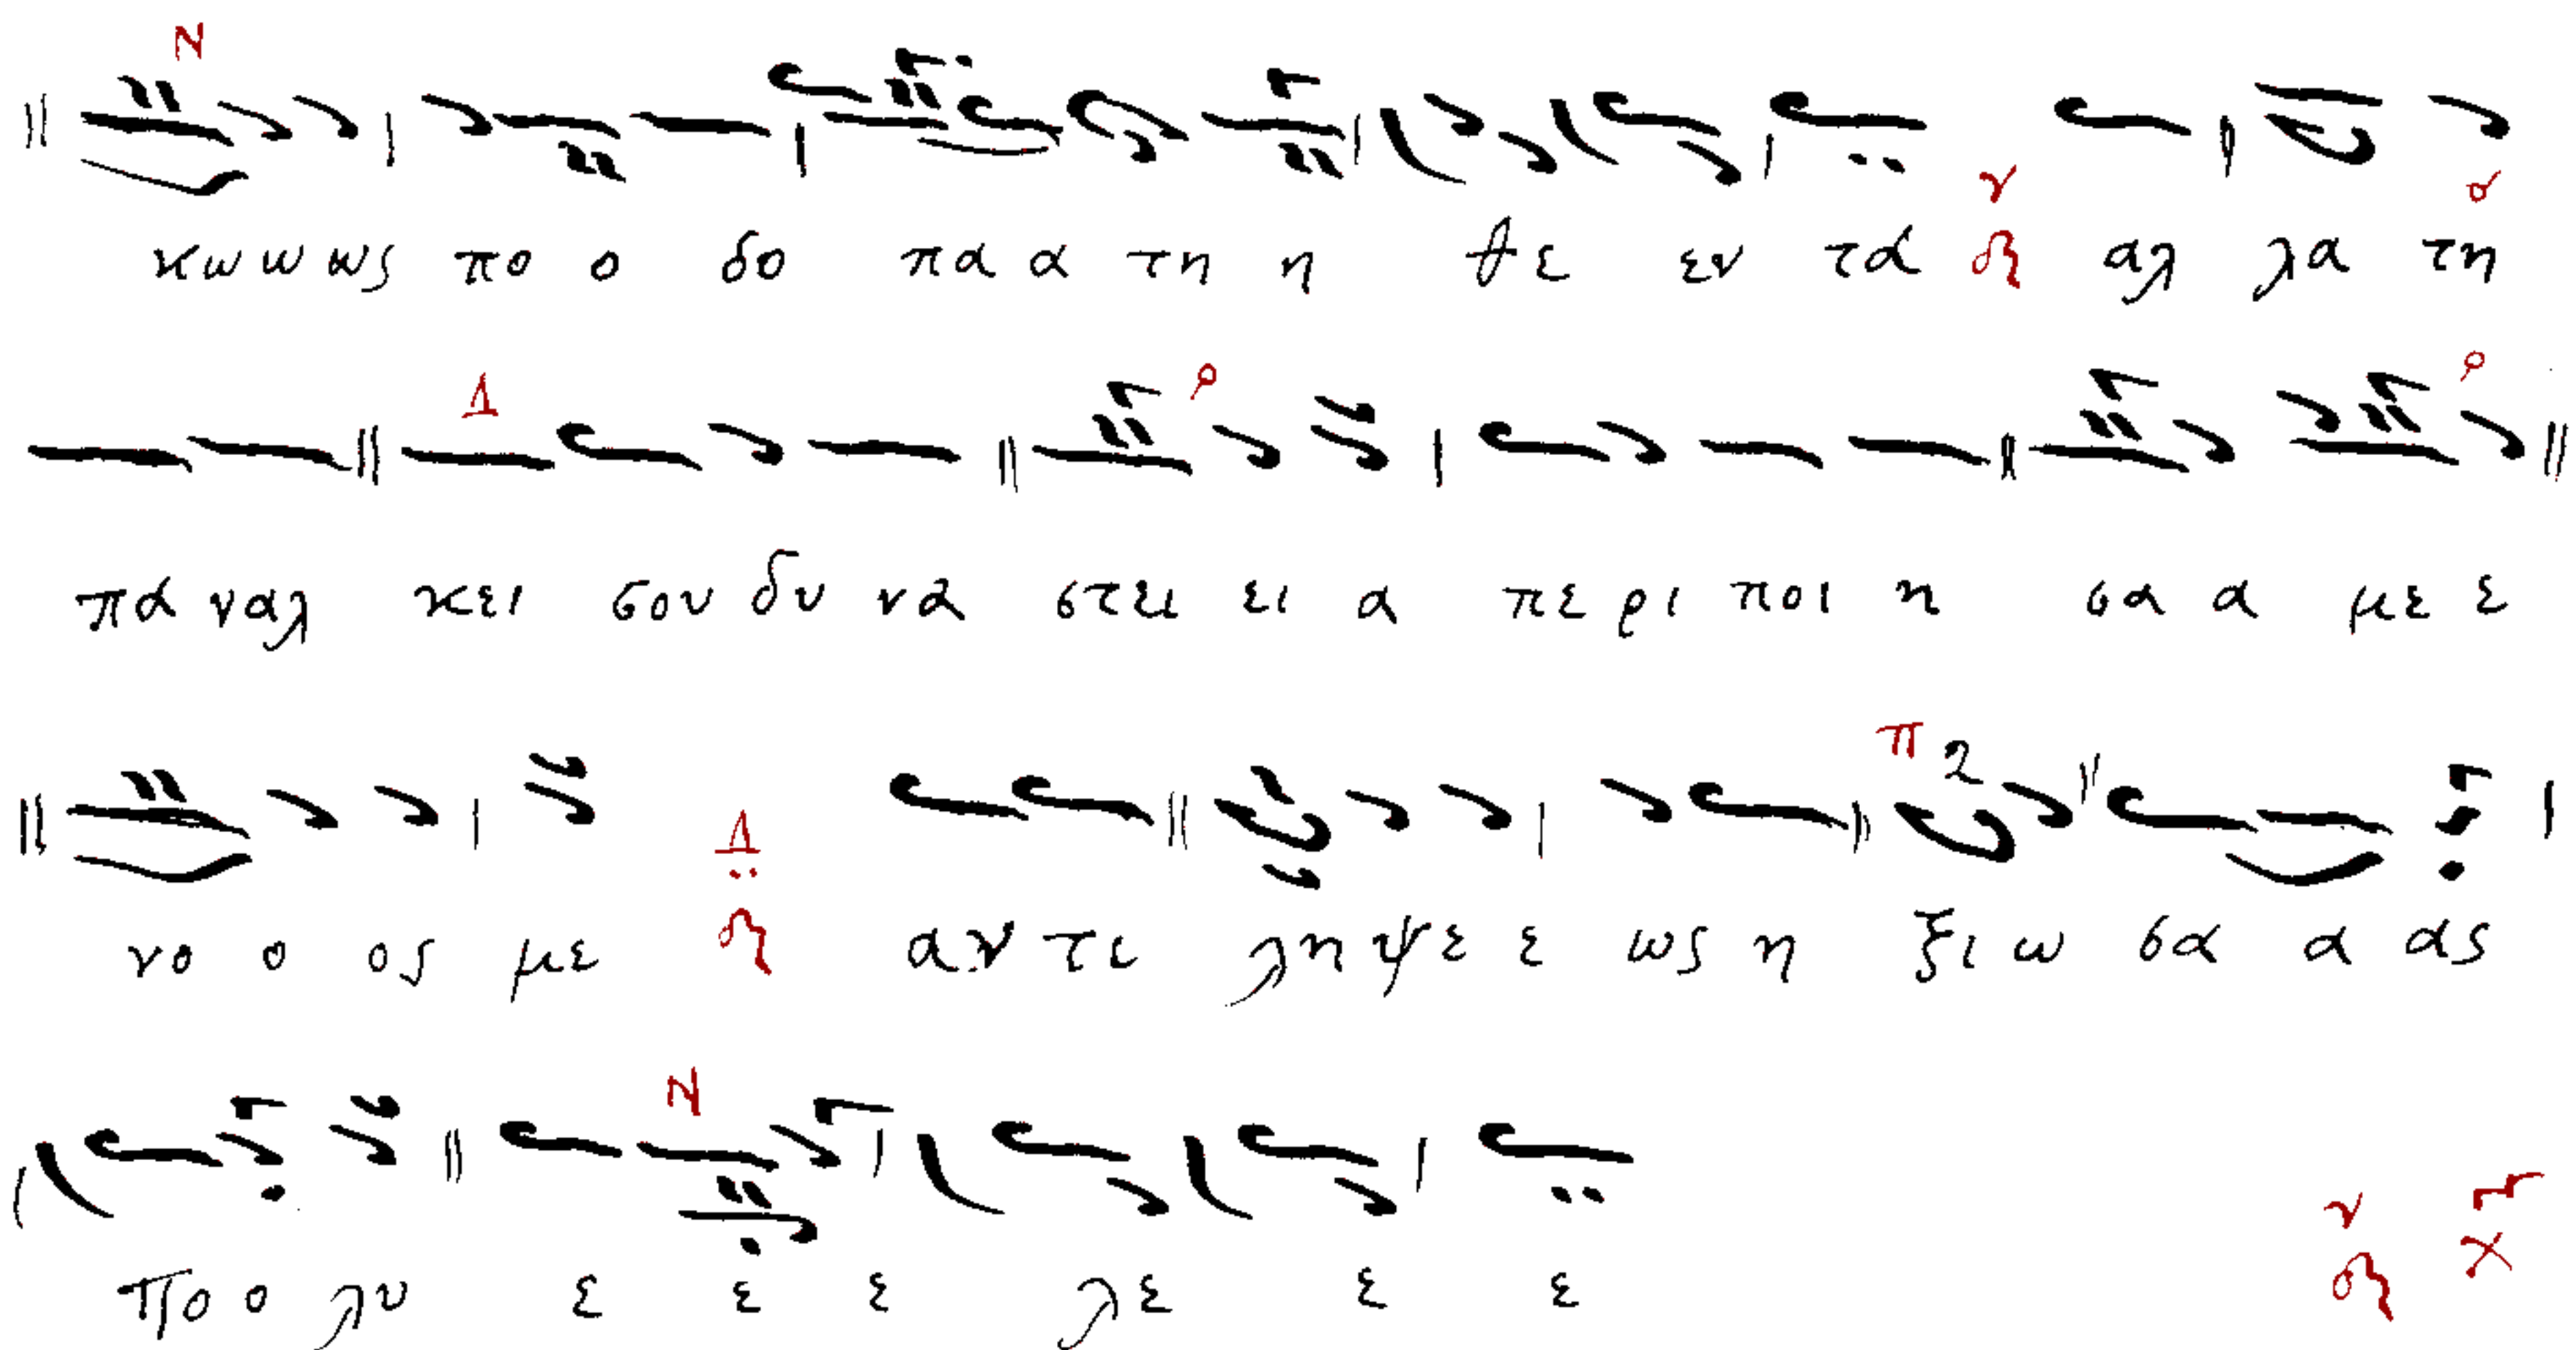 κω ω ως πο ο δο πα α τη η θε εν τα αλ λα τη
πα ναλ κει σου δυ να στει ει α πε ρι ποι η σα α με ε
νο ο ος με αν τι λη ψε ε ως η ξι ω σα α ας
πο ο λυ ε ε ε λε ε ε